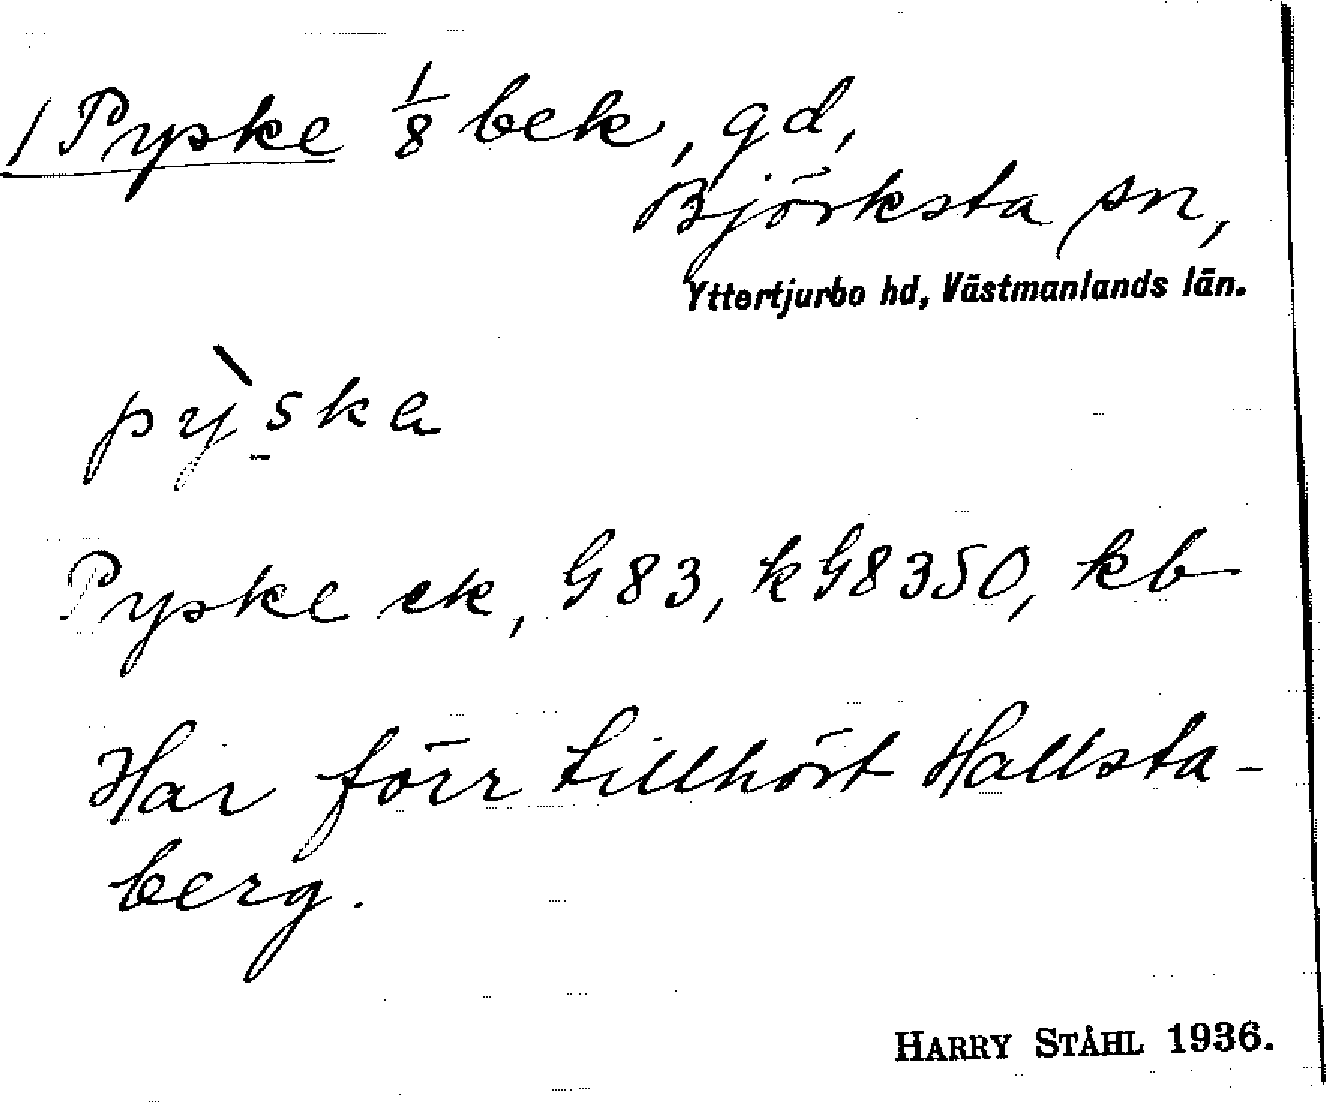 1 Pyske 1/8 bek, gd,
Björksta sn,
Yttertjurbo hd, Västmanlands län.
pỳska
Pyske ek, G83, kG8350, kb
Har förr tillhört Hallsta-
berg.
HARRY STÅHL 1936.